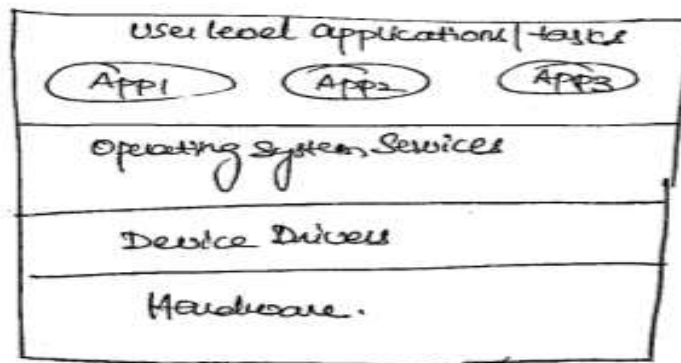 User level applications/tasks
App1 App2 App3
Operating System Services
Device Drivers
Hardware.